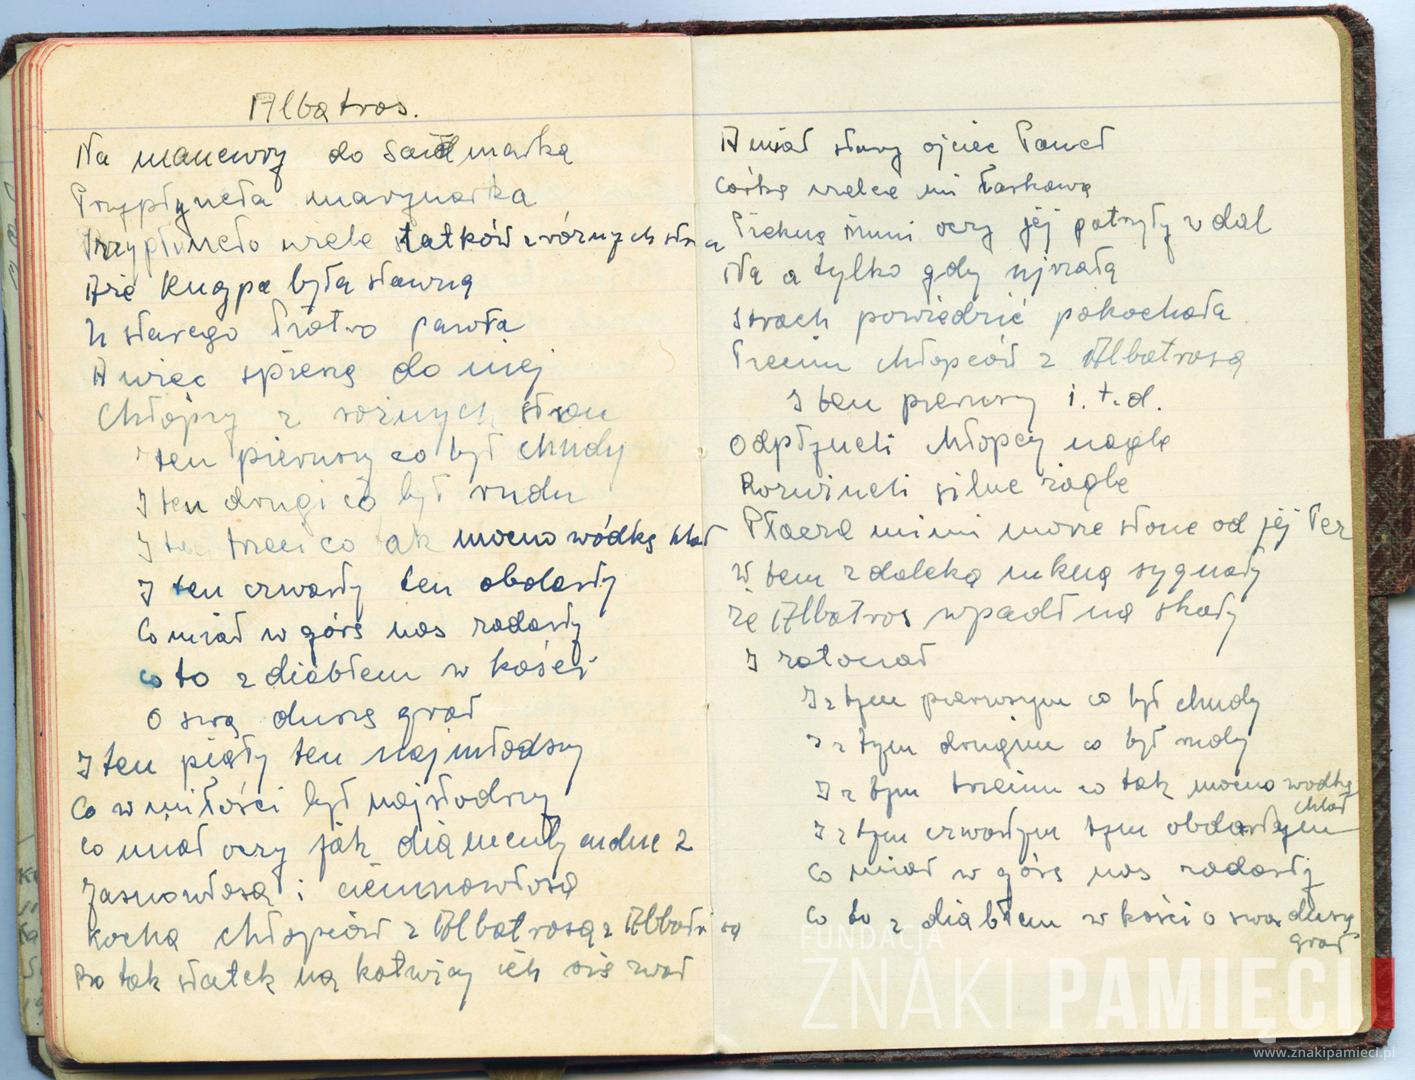 Albatros.
Na manewry do Sau marka
Przypłyneła marynarka
Przypłyneło wiele statków z różnych stron
A że Knajpa była sławną
U starego Piotro pawła
A więc spieszą do niej
Chłopcy z rożnych stron
I ten pierwszy co był chudy
I ten drugi co był rudu
I ten trzeci co tak mocno wódkę chlał
I ten czwarty ten obdarty
Co miał w górę nos zadarty
Co to z diabłem w kości
O swą duszę grał
I ten piąty ten najmłodszy
Co w miłości był najsłodszy
Co miał oczy jak diamenty cudne 2
Jasnowłosą i ciemnowłosą
Kochą chłopców z Albatrosą z Albatrosą
Bo tak statek na kotwicy ich się zwał
A miał stary ojciec Paweł
Corkę wielce mi łaskawą
Piekną inni oczy jej patrzyły w dal
Na a tylko gdy ujrzała
Strach powiedzić pokochała
Pieciu chłopców z Albatrosą
I ten pierwszy i. t. d.
Odpłyneli chłopcy nagle
Rozwineli silne żagle
Płacze mimi morze słone od jej łez
W tem z daleką mkną sygnały
że Albatros wpadł na skały
I zatonał
I z tym pierwszym co był chudy
I z tym drugim co był rudy
I z tym trzeim co tak mocno wodkę
chlał
I z tym czwartym tym obdartym
Co miał w górę nos zadarty
Co to z diabłem w kości o swa duszę
grał
FUNDACJA
ZNAKI PAMIĘCI
www.znakipamieci.pl